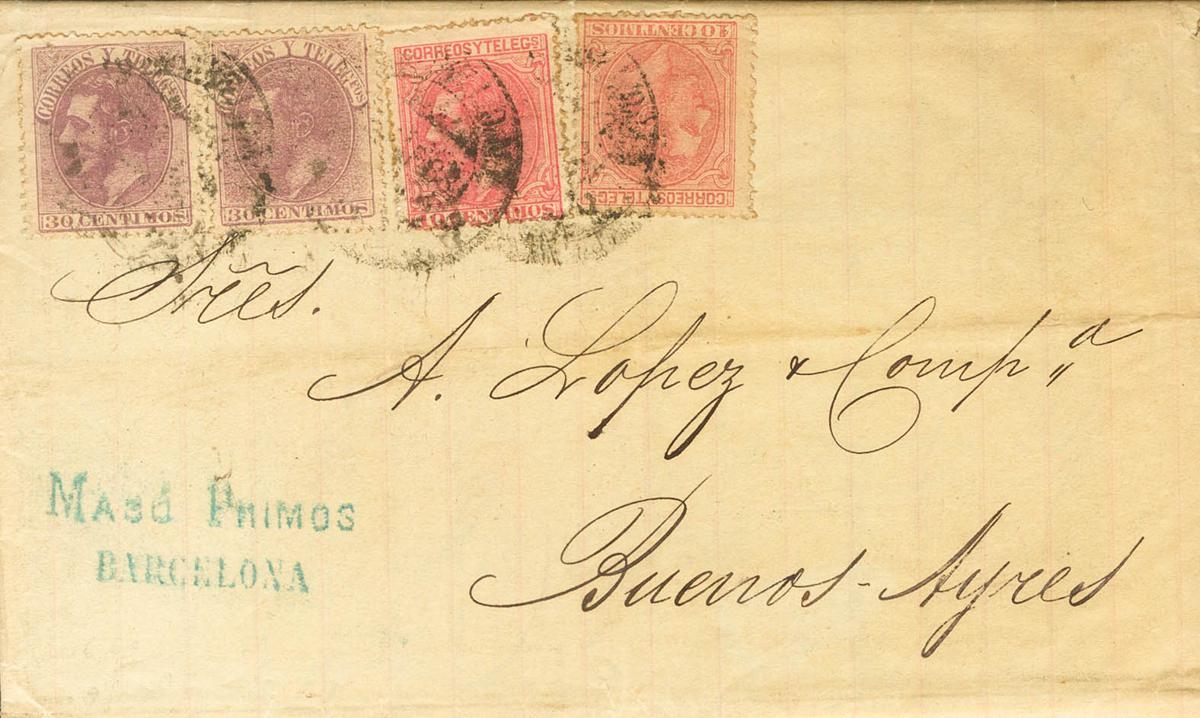 CORREOS Y TELEGFOS
30 CENTIMOS
30 CENTIMOS
CORREOS Y TELEGS
10 CENTIMOS
10 CENTIMOS
CORREOS Y TELEGS
Sr̃es.
A. Lopez & Comp.ª
Buenos-Ayres
MASÓ PRIMOS
BARCELONA